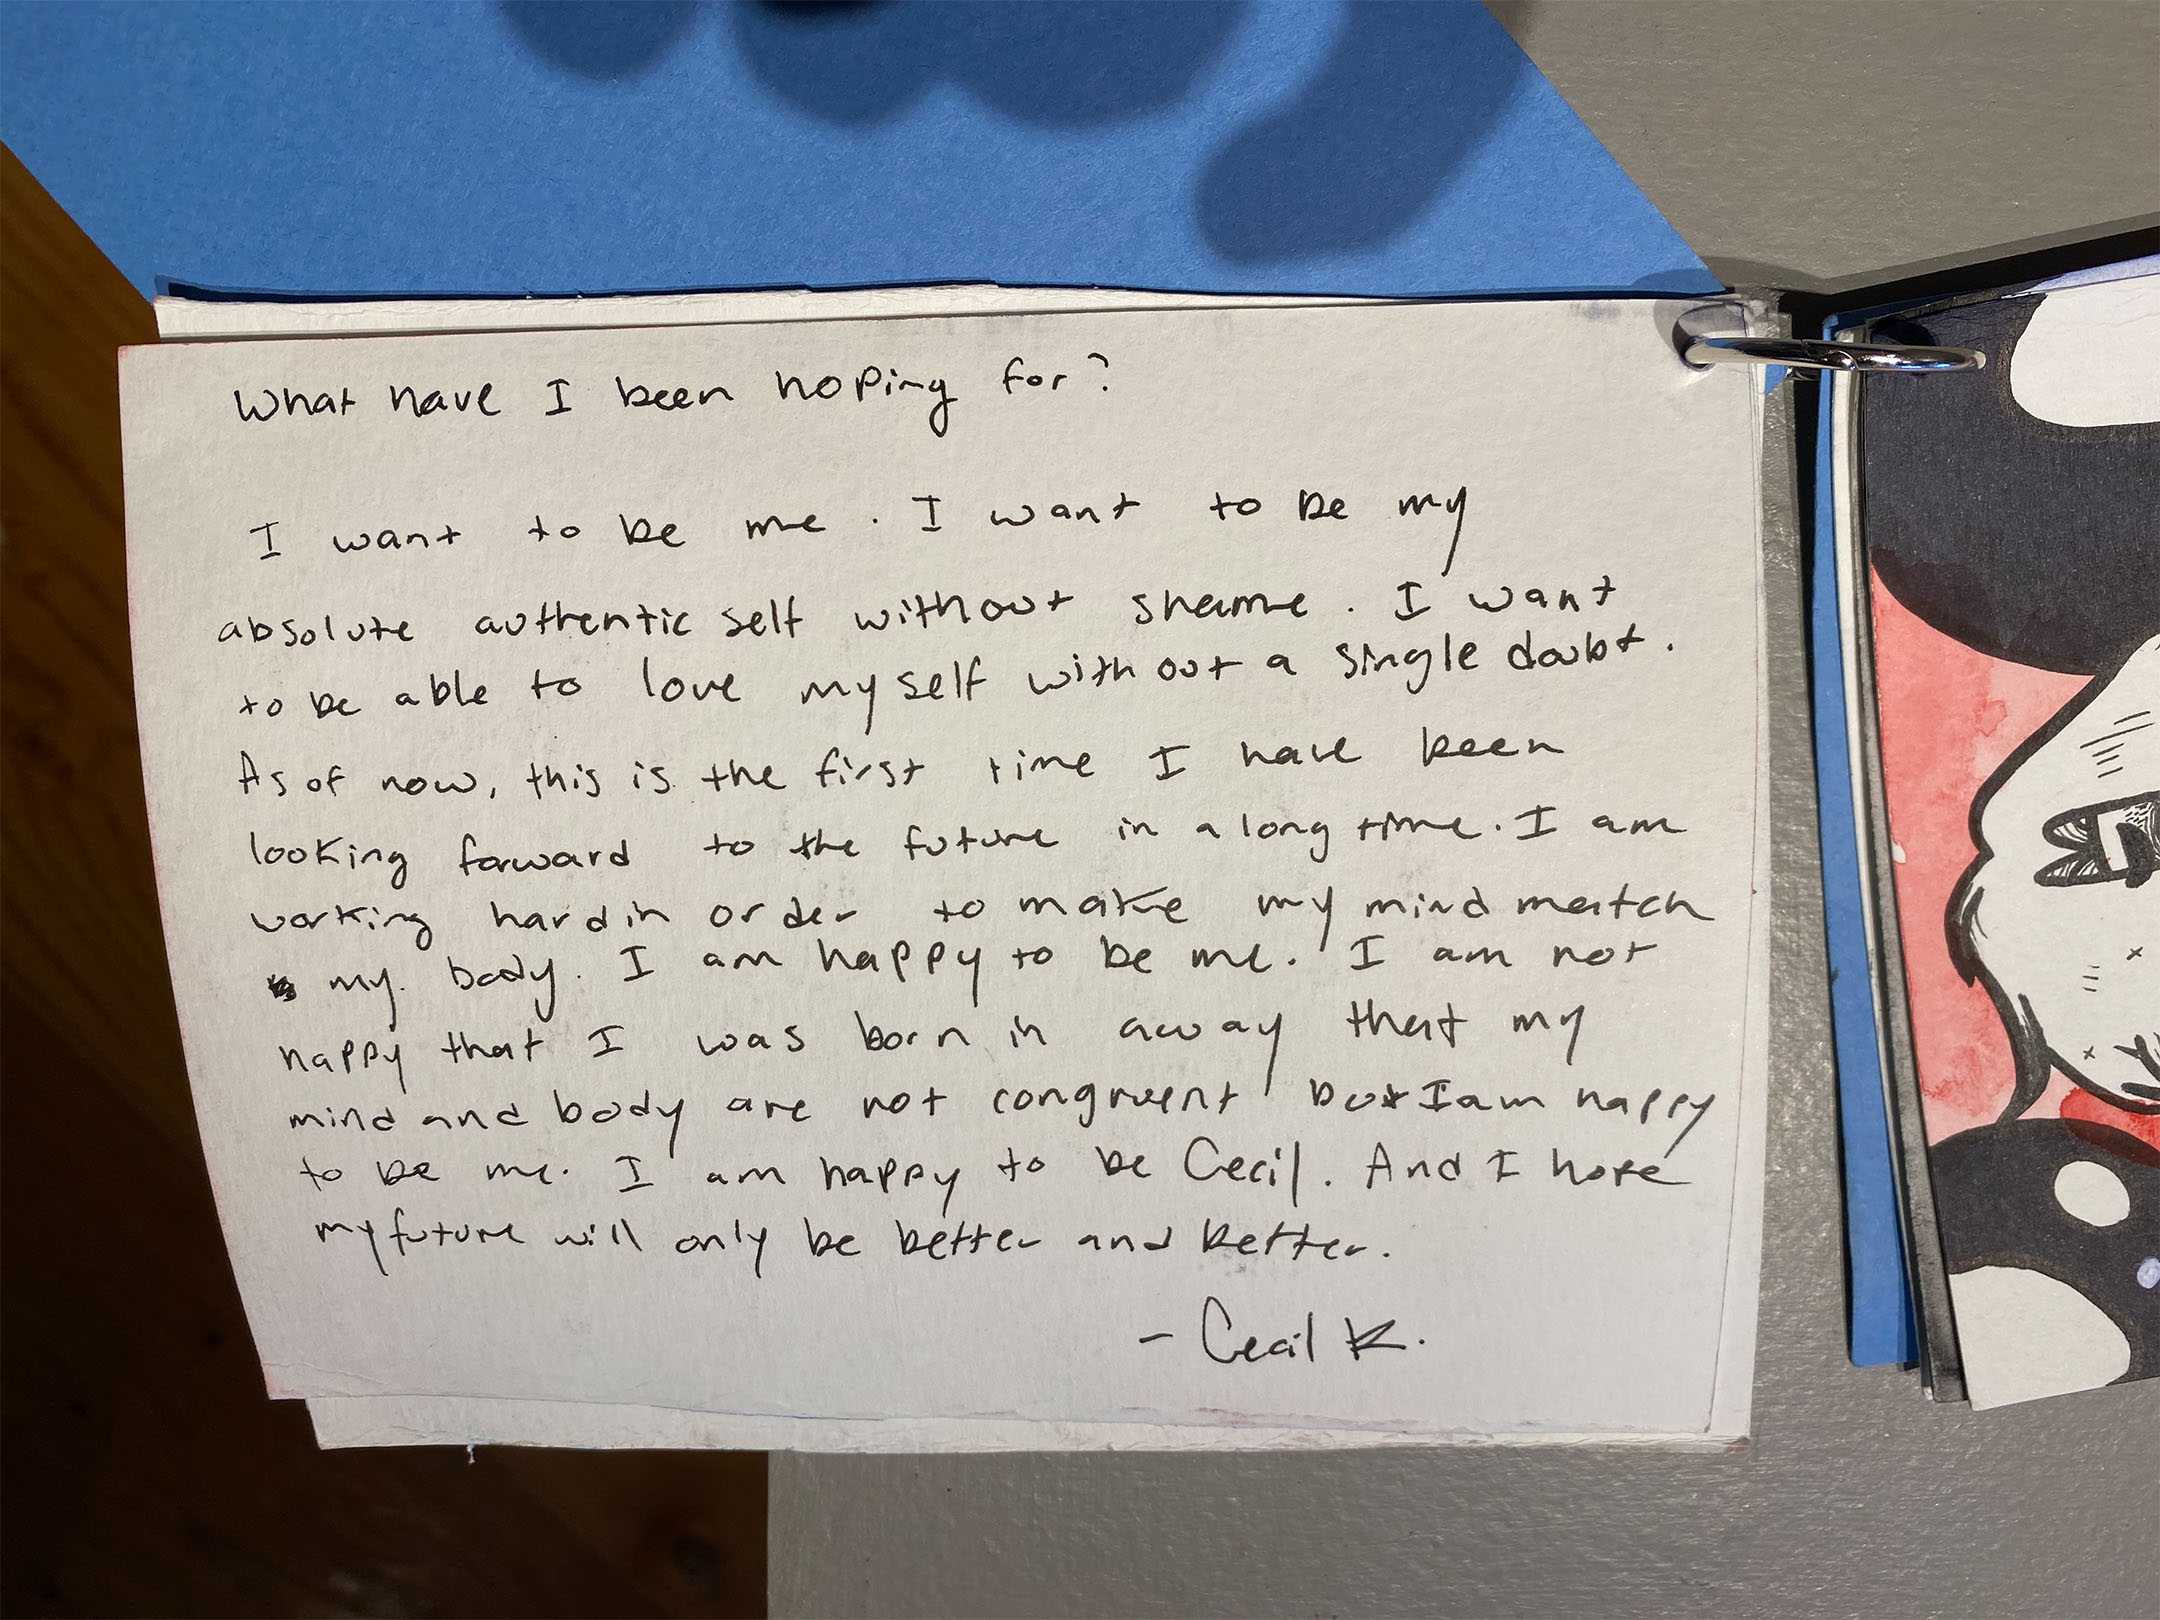 What have I been hoping for?
I want to be me. I want to be my
absolute authentic self without shame. I want
to be able to love myself without a single doubt.
As of now, this is the first time I have been
looking forward to the future in a long time. I am
working hard in order to make my mind match
my body. I am happy to be me. I am not
happy that I was born in a way that my
mind and body are not congruent but I am happy
to be me. I am happy to be Cecil. And I hope
my future will only be better and better.
- Cecil K.